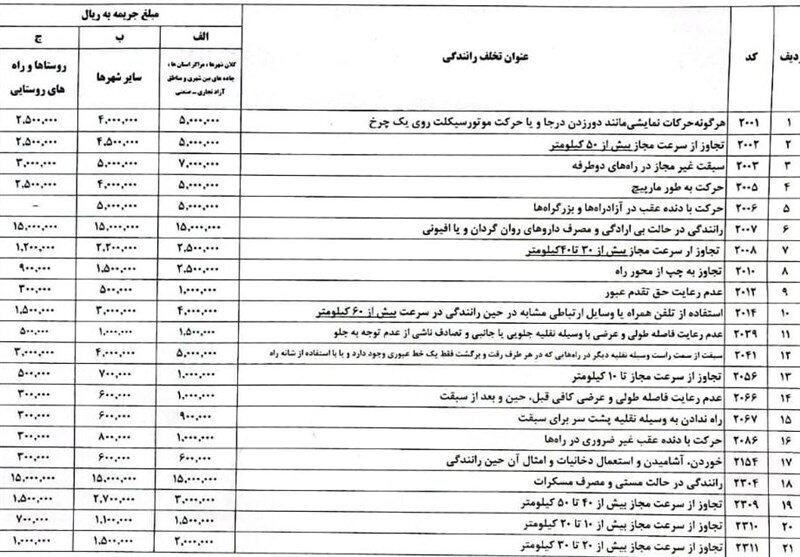 ردیف کد عنوان تخلف رانندگی مبلغ جریمه به ریال
الف ب ج
کلان شهرها، مراکز استان ها، جاده های بین شهری و مناطق آزاد تجاری – صنعتی سایر شهرها روستاها و راه های روستایی
۱ ۲۰۰۱ هرگونه حرکات نمایشی مانند دورزدن درجا و یا حرکت موتورسیکلت روی یک چرخ ۵,۰۰۰,۰۰۰ ۴,۰۰۰,۰۰۰ ۲,۵۰۰,۰۰۰
۲ ۲۰۰۲ تجاوز از سرعت مجاز بیش از ۵۰ کیلومتر ۵,۰۰۰,۰۰۰ ۴,۵۰۰,۰۰۰ ۲,۵۰۰,۰۰۰
۳ ۲۰۰۳ سبقت غیر مجاز در راه‌های دوطرفه ۷,۰۰۰,۰۰۰ ۵,۰۰۰,۰۰۰ ۳,۰۰۰,۰۰۰
۴ ۲۰۰۵ حرکت به طور مارپیچ ۵,۰۰۰,۰۰۰ ۴,۰۰۰,۰۰۰ ۲,۵۰۰,۰۰۰
۵ ۲۰۰۶ حرکت با دنده عقب در آزادراه‌ها و بزرگراه‌ها ۵,۰۰۰,۰۰۰ ۵,۰۰۰,۰۰۰ –
۶ ۲۰۰۷ رانندگی در حالت بی ارادگی و مصرف داروهای روان گردان و یا افیونی ۱۵,۰۰۰,۰۰۰ ۱۵,۰۰۰,۰۰۰ ۱۵,۰۰۰,۰۰۰
۷ ۲۰۰۸ تجاوز ار سرعت مجاز بیش از ۳۰ تا ۴۰کیلومتر ۲,۵۰۰,۰۰۰ ۲,۲۰۰,۰۰۰ ۱,۲۰۰,۰۰۰
۸ ۲۰۱۰ تجاوز به چپ از محور راه ۲,۵۰۰,۰۰۰ ۱,۵۰۰,۰۰۰ ۹۰۰,۰۰۰
۹ ۲۰۱۲ عدم رعایت حق تقدم عبور ۱,۰۰۰,۰۰۰ ۵۰۰,۰۰۰ ۳۰۰,۰۰۰
۱۰ ۲۰۱۴ استفاده از تلفن همراه یا وسایل ارتباطی مشابه در حین رانندگی در سرعت بیش از ۶۰ کیلومتر ۴,۰۰۰,۰۰۰ ۳,۰۰۰,۰۰۰ ۱,۵۰۰,۰۰۰
۱۱ ۲۰۳۹ عدم رعایت فاصله طولی و عرضی با وسیله نقلیه جلویی یا جانبی و تصادف ناشی از عدم توجه به جلو ۱,۵۰۰,۰۰۰ ۱,۰۰۰,۰۰۰ ۵۰۰,۰۰۰
۱۲ ۲۰۴۱ سبقت از سمت راست وسیله نقلیه دیگر در راه‌هایی که در هر طرف رفت و برگشت فقط یک خط عبوری وجود دارد و یا با استفاده از شانه راه ۵,۰۰۰,۰۰۰ ۴,۰۰۰,۰۰۰ ۳,۰۰۰,۰۰۰
۱۳ ۲۰۵۶ تجاوز از سرعت مجاز تا ۱۰ کیلومتر ۱,۰۰۰,۰۰۰ ۷۰۰,۰۰۰ ۵۰۰,۰۰۰
۱۴ ۲۰۶۶ عدم رعایت فاصله طولی و عرضی کافی قبل، حین و بعد از سبقت ۱,۰۰۰,۰۰۰ ۶۰۰,۰۰۰ ۳۰۰,۰۰۰
۱۵ ۲۰۶۷ راه ندادن به وسیله نقلیه پشت سر برای سبقت ۹۰۰,۰۰۰ ۶۰۰,۰۰۰ ۳۰۰,۰۰۰
۱۶ ۲۰۸۶ حرکت با دنده عقب غیر ضروری در راه‌ها ۱,۰۰۰,۰۰۰ ۸۰۰,۰۰۰ ۳۰۰,۰۰۰
۱۷ ۲۱۵۴ خوردن، آشامیدن و استعمال دخانیات و امثال آن حین رانندگی ۶۰۰,۰۰۰ ۶۰۰,۰۰۰ ۳۰۰,۰۰۰
۱۸ ۲۳۰۴ رانندگی در حالت مستی و مصرف مسکرات ۱۵,۰۰۰,۰۰۰ ۱۵,۰۰۰,۰۰۰ ۱۵,۰۰۰,۰۰۰
۱۹ ۲۳۰۹ تجاوز از سرعت مجاز بیش از ۴۰ تا ۵۰ کیلومتر ۳,۰۰۰,۰۰۰ ۲,۷۰۰,۰۰۰ ۱,۵۰۰,۰۰۰
۲۰ ۲۳۱۰ تجاوز از سرعت مجاز بیش از ۱۰ تا ۲۰ کیلومتر ۱,۵۰۰,۰۰۰ ۱,۱۰۰,۰۰۰ ۷۰۰,۰۰۰
۲۱ ۲۳۱۱ تجاوز از سرعت مجاز بیش از ۲۰ تا ۳۰ کیلومتر ۲,۰۰۰,۰۰۰ ۱,۵۰۰,۰۰۰ ۱,۰۰۰,۰۰۰